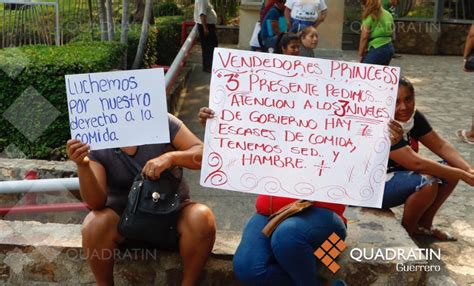 Luchemos
por nuestro
derecho a la
comida
VENDEDORES PRINCESS
"3" PRESENTE PEDIMOS
ATENCION A LOS 3 NIVELES
DE GOBIERNO HAY
ESCASES DE COMIDA,
TENEMOS SED. Y
HAMBRE.
QUADRATIN
Guerrero
QUADRATIN
Guerrero
QUADRATIN